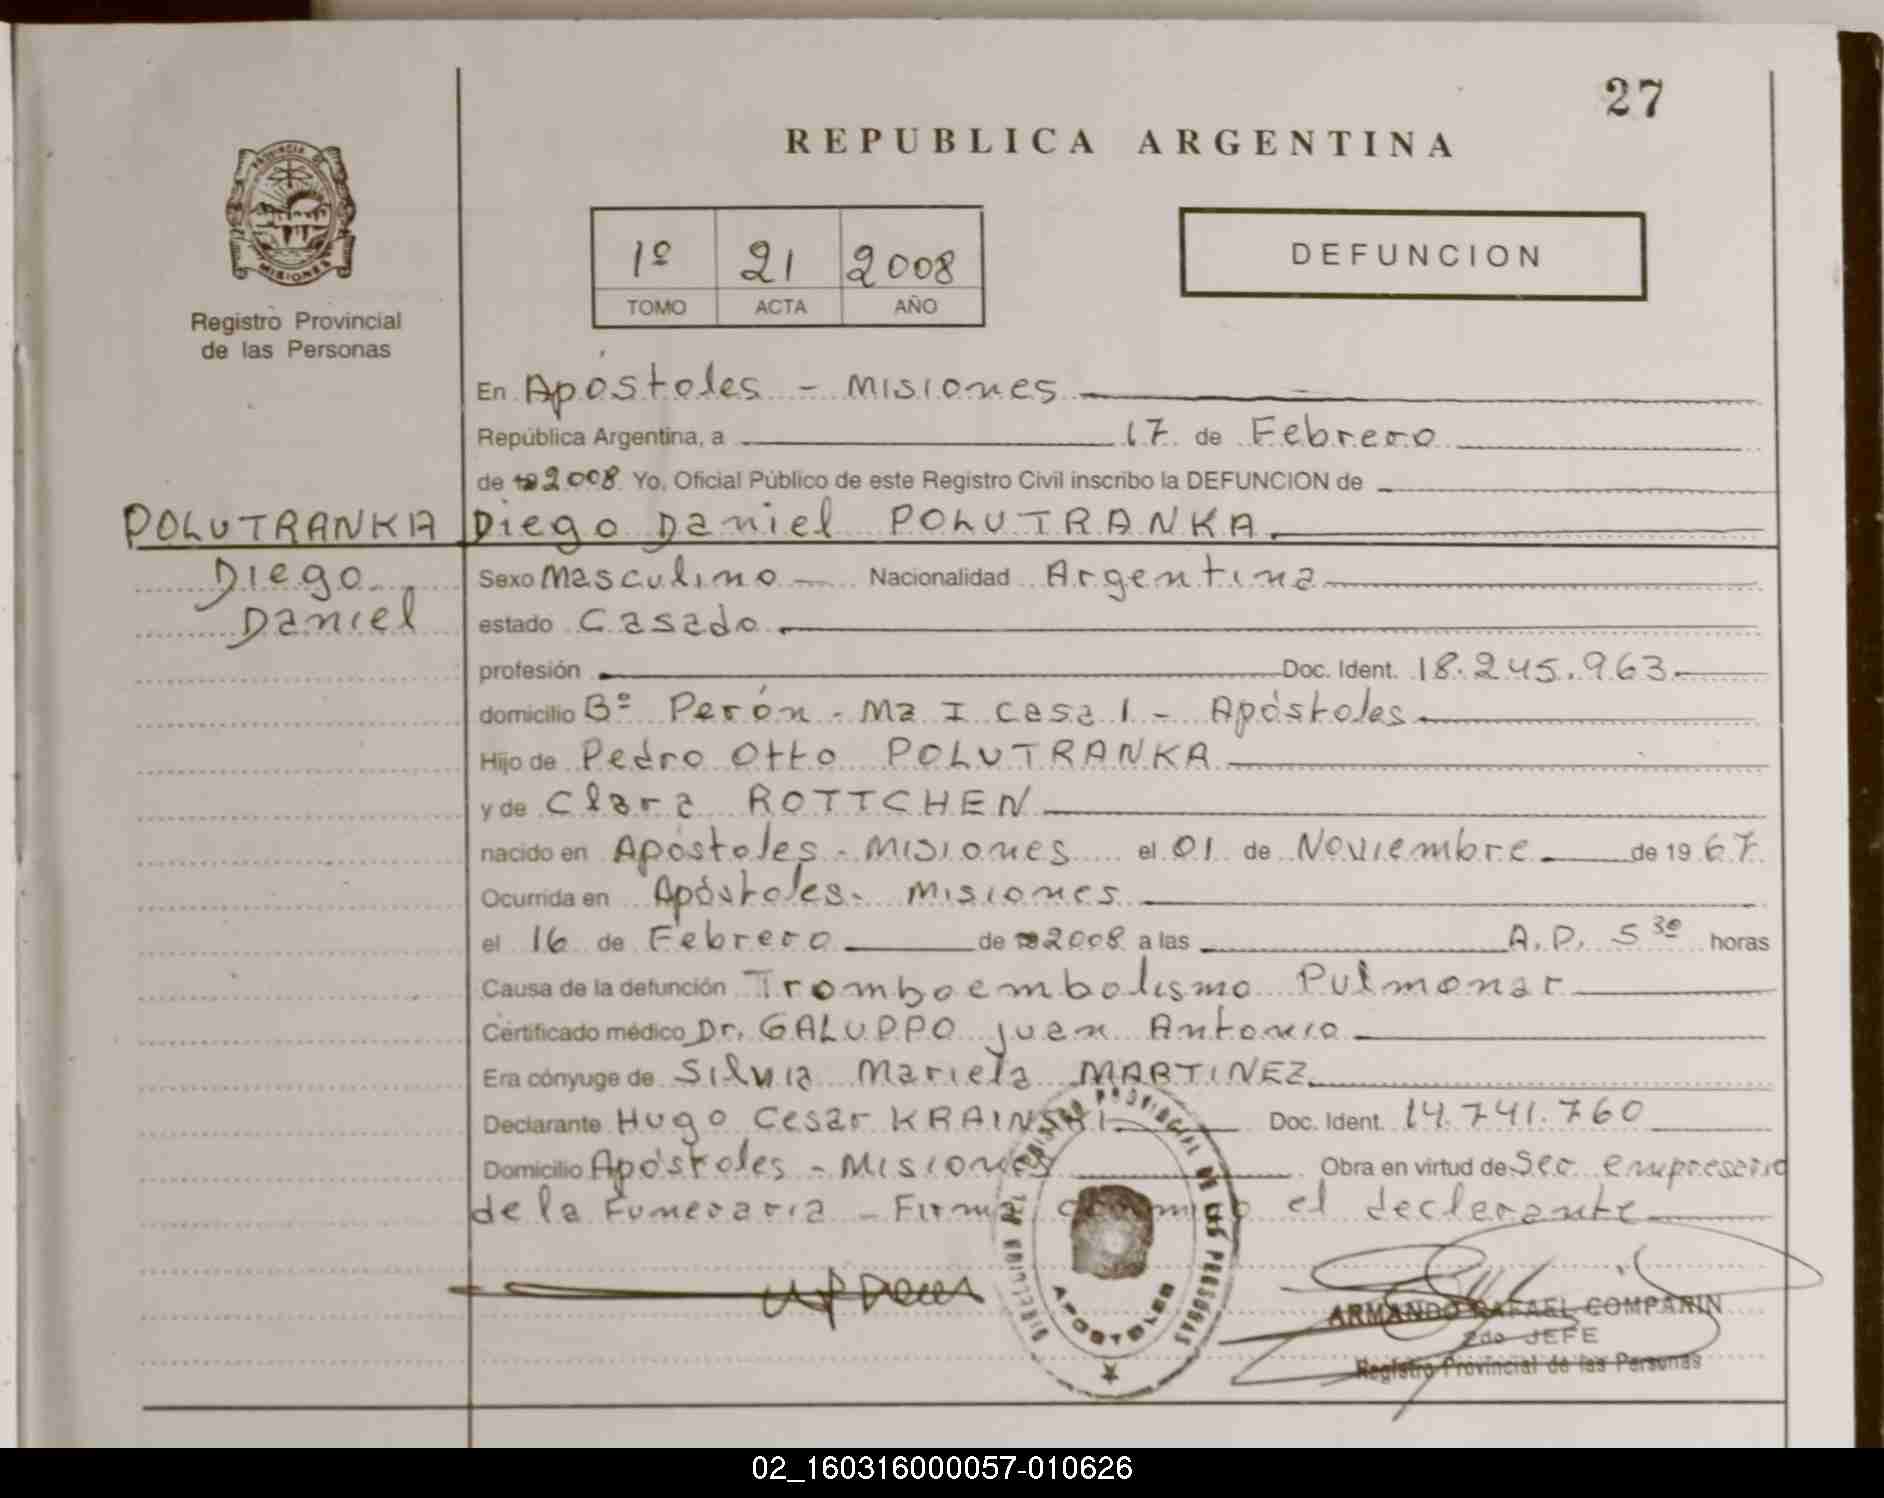 27
REPUBLICA ARGENTINA
PROVINCIA DE
MISIONES
Registro Provincial
de las Personas
1º 21 2008
TOMO ACTA AÑO
DEFUNCION
En Apóstoles - Misiones
República Argentina, a 17 de Febrero
de 19 2008 Yo, Oficial Público de este Registro Civil inscribo la DEFUNCION de
POLUTRANKA
Diego
Daniel
Diego Daniel POLUTRANKA
Sexo Masculino Nacionalidad Argentina
estado Casado
profesión Doc. Ident. 18.245.963
domicilio Bº Perón - Mz I casa 1 - Apóstoles
Hijo de Pedro Otto POLUTRANKA
y de Clara ROTTCHEN
nacido en Apóstoles - Misiones el 01 de Noviembre de 1967
Ocurrida en Apóstoles - Misiones
el 16 de Febrero de 19 2008 a las A.P. 5 30 horas
Causa de la defunción Tromboembolismo Pulmonar
Certificado médico Dr. GALUPPO Juan Antonio
Era cónyuge de Silvia Mariela MARTINEZ
Declarante Hugo Cesar KRAINSKI Doc. Ident. 14.741.760
Domicilio Apóstoles - Misiones Obra en virtud de Ser empresario
de la Funeraria - Firma conmigo el declarante
DIRECCION DEL REGISTRO PROVINCIAL DE LAS PERSONAS
APOSTOLES
ARMANDO RAFAEL COMPARIN
2do JEFE
Registro Provincial de las Personas
02_160316000057-010626